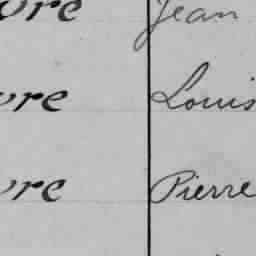 vre Jean
vre Louis
vre Pierre